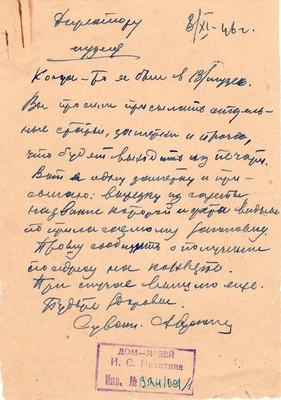 Директору
музея
8/XI-46 г.
Когда-то я был в В/музее.
Вы просили присылать отдель-
ные статьи, заметки и проч.,
что будет выходить из печати.
Вот я одну заметку и при-
сылаю: вырезку из газеты
название которой и указы
по прилагаемому
Прошу сообщить о получении
по адресу на конверте.
При случае вышлю еще.
Будьте здоровы.
Уваж.
ДОМ-МУЗЕЙ
И. С. Никитина
Инв. №